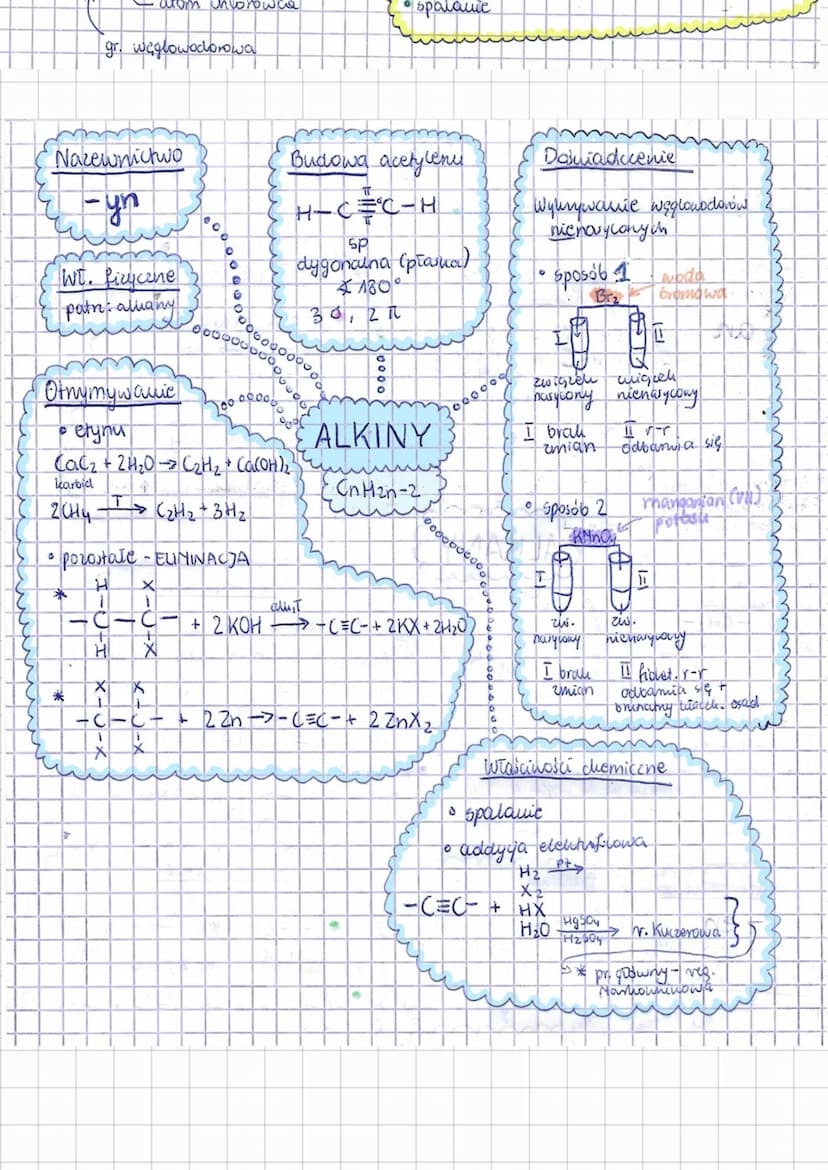 atom chlorowca
spalanie
gr. węglowodorowa
Nazewnictwo
-yn
Wł. fizyczne
patrz: alkany
Budowa acetylenu
π
H-C≡C-H
σ
π
sp
dygonalna (płaska)
∢ 180°
3 σ, 2 π
Doświadczenie
Wykrywanie węglowodorów
nienasyconych
• sposób 1
woda
bromowa
Br₂
I II
związek związek
nasycony nienasycony
I brak II r-r
zmian odbarwia się
• sposób 2
manganian (VII)
potasu
KMnO₄
I II
zw. zw.
nasycony nienasycony
I brak II fiolet. r-r
zmian odbarwia się +
brunatny osad
ALKINY
CnH2n-2
Otrzymywanie
• etynu
CaC₂ + 2H₂O → C₂H₂ + Ca(OH)₂
karbid
2CH₄ T→ C₂H₂ + 3H₂
• pozostałe - ELIMINACJA
* H X
-C-C- + 2 KOH alk,T→ -C≡C- + 2KX + 2H₂O
H X
* X X
-C-C- + 2 Zn → -C≡C- + 2 ZnX₂
X X
Właściwości chemiczne
• spalanie
• addycja elektrofilowa
H₂ Pt→
X₂
-C≡C- + HX
H₂O HgSO₄ H₂SO₄ → r. Kuczerowa
* pr. główny - reg.
Markownikowa